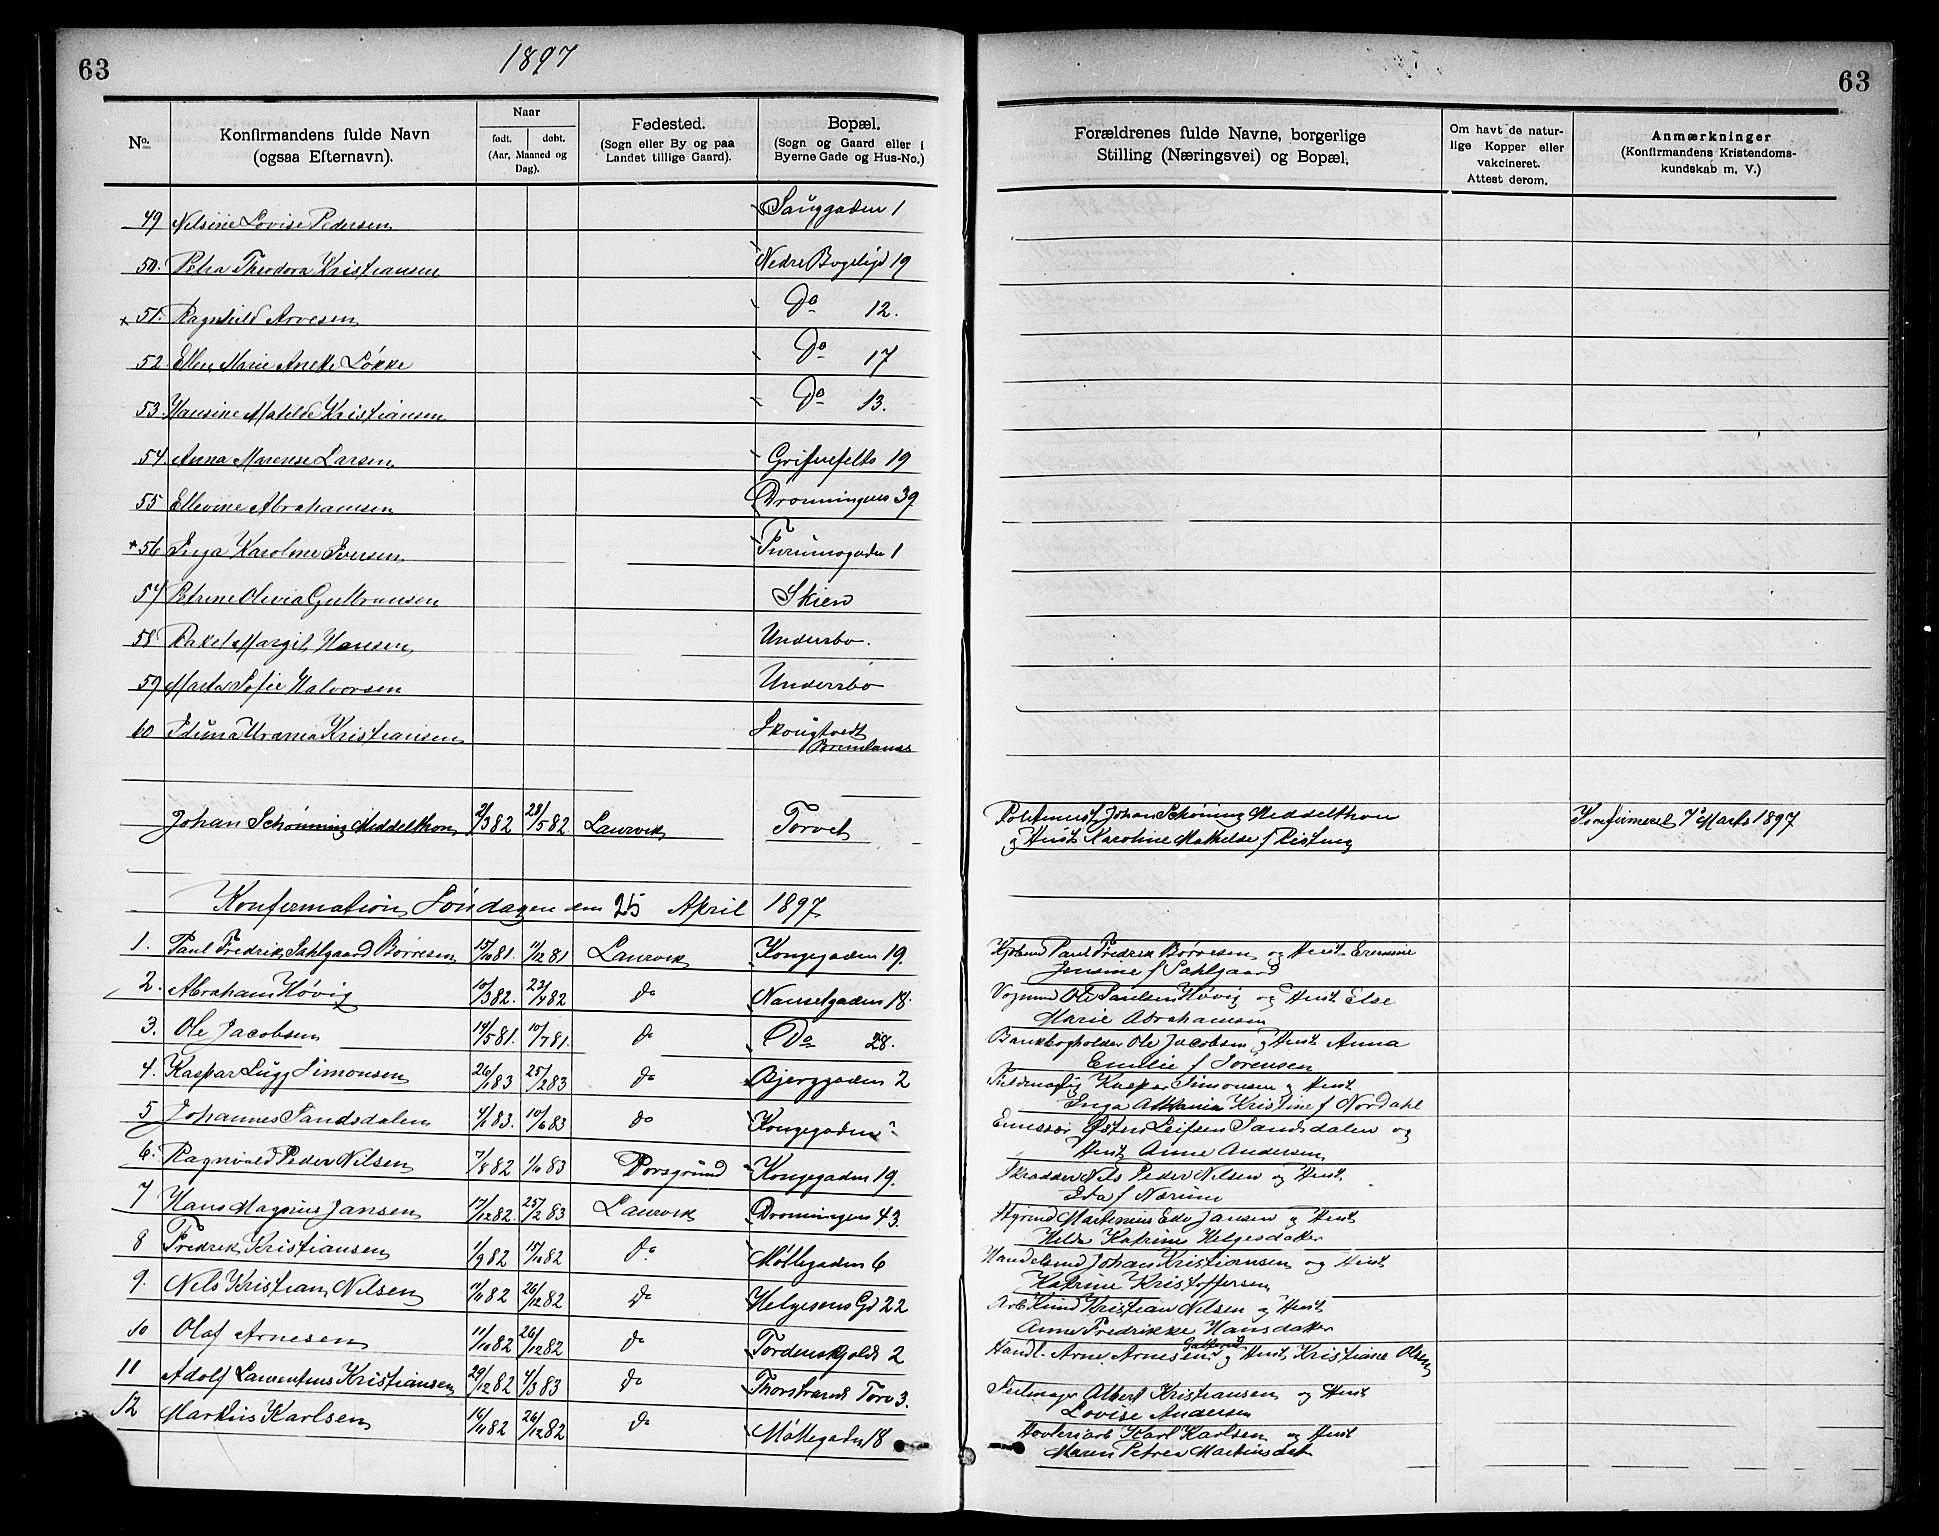 63
1897
63
No.
Konfirmandens fulde Navn
(ogsaa Efternavn).
Naar
født.
døbt.
(Aar, Maaned og
Dag).
Fødested.
(Sogn eller By og paa
Landet tillige Gaard).
Bopæl.
(Sogn og Gaard eller i
Byerne Gade og Hus-No.)
Forældrenes fulde Navne, borgerlige
Stilling (Næringsvei) og Bopæl.
Om havt de natur-
lige Kopper eller
vakcineret.
Attest derom.
Anmærkninger
(Konfirmandens Kristendoms-
kundskab m. V.)
49 Nelsine Lovise Pedersen 1
50. Petra Theodora Kristiansen Nedre 19
× 51. Ragnhild Arvesen Do 12.
52 Ellen Marie Løkke Do 17
53 Hansine Matilde Kristiansen Do 13.
54. Anna Marense Larsen Grifenfelts 19
55 Ellevine Abrahamsen Dronningens 39
× 56 Inga Karoline Iversen 1
57 Petrine Olivia Gulbransen Skien
58 Rakel Margit Hansen Undersbo.
59 Marta Sofie Halvorsen Undersbo
60 Kristiansen
Brunlanæs
Johan Schønning Middelthon 2/3 82 28/5 82 Laurvik Torvet Johan Schøning Middelthon Konfirmeret 7de Marts 1897
og Hust Karoline Mathilde f Risting
Konfirmation Søndagen den 25 April 1897
1. Paul Fredrik Sahlgaard Børresen 15/10 81. 11/12 81 Laurvik Kongegaden 19. Kjøbmd Paul Fredrik Børresen og Hust
Jensine f Sahlgaard
2. Abraham Høvig 10/3 82. 23/4 82 do Nansetgaden 18. Vognmd Ole Paulsen Høvig og Hust Else
Marie Abrahamsen
3. Ole Jacobsen 14/5 81. 10/7 81. do Do 28. Bankbogholder Ole Jacobsen og Hust Anna
Emilie f Sørensen
4. Kaspar Lugg Simonsen 26/1 83 25/2 83 do Bjerggaden 2 Kaspar Simonsen og Hust
Inga Kristine f Nordahl
5 Johannes Sandsdalen 4/1 83. 10/6 83 do Kongegaden Leifsen Sandsdalen og
Hust Anne Andersen
6. Ragnvald Peder Nilsen 7/8 82 1/10 83 Porsgrund Kongegaden 19. Skrædder Nils Peder Nilsen og Hust
Eda f
7 Hans Magnus Jansen 17/12 82. 25/2 83 Laurvik Dronningens 43. Styrmd Martinius Edv Jansen og Hust
Hilda Katrine Helgesdatter
8 Fredrik Kristiansen 1/9 82 15/10 82 do Møllegaden 6 Handelsmd Johan Kristiansen og Hust
Katrine Kristoffersen
9. Nels Kristian Nilsen 11/11 82 26/12 82 do Helgesens Gd 22 Arb Knud Kristian Nilsen og Hust
Anne Fredrikke Hansdatter
10 Olaf Arnesen 11/10 82 26/12 82 do Tordenskjolds 2 Handl. Arne Arnesen og Hust Kristiane Olsen
11 Adolf Laurentius Kristiansen 29/12 82 4/3 83 do Thorstrands Torv 3. Seilmager Albert Kristiansen og Hust
Lovise Andersen
12 Markus Karlsen 16/11 82 26/12 82 do Møllegaden 18 Høvleriarb Karl Karlsen og Hust
Maren Petrea Martinsdat